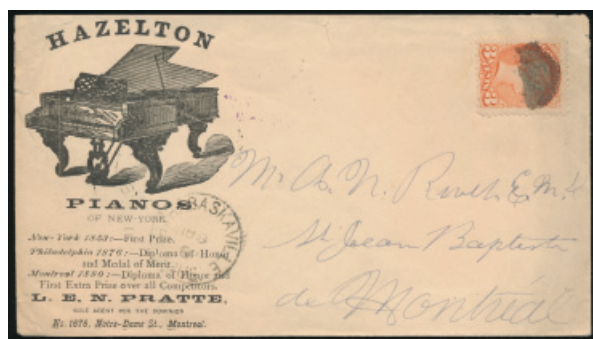 HAZELTON
PIANOS
OF NEW-YORK.
New-York 1853:—First Prize.
Philadelphia 1876:—Diploma of Honor
and Medal of Merit.
Montreal 1880:—Diploma of Honor and
First Extra Prize over all Competitors.
L. E. N. PRATTE,
SOLE AGENT FOR THE DOMINION
No. 1676, Notre-Dame St., Montreal.
BASKAVILLE
St Jean Baptiste
de Montréal